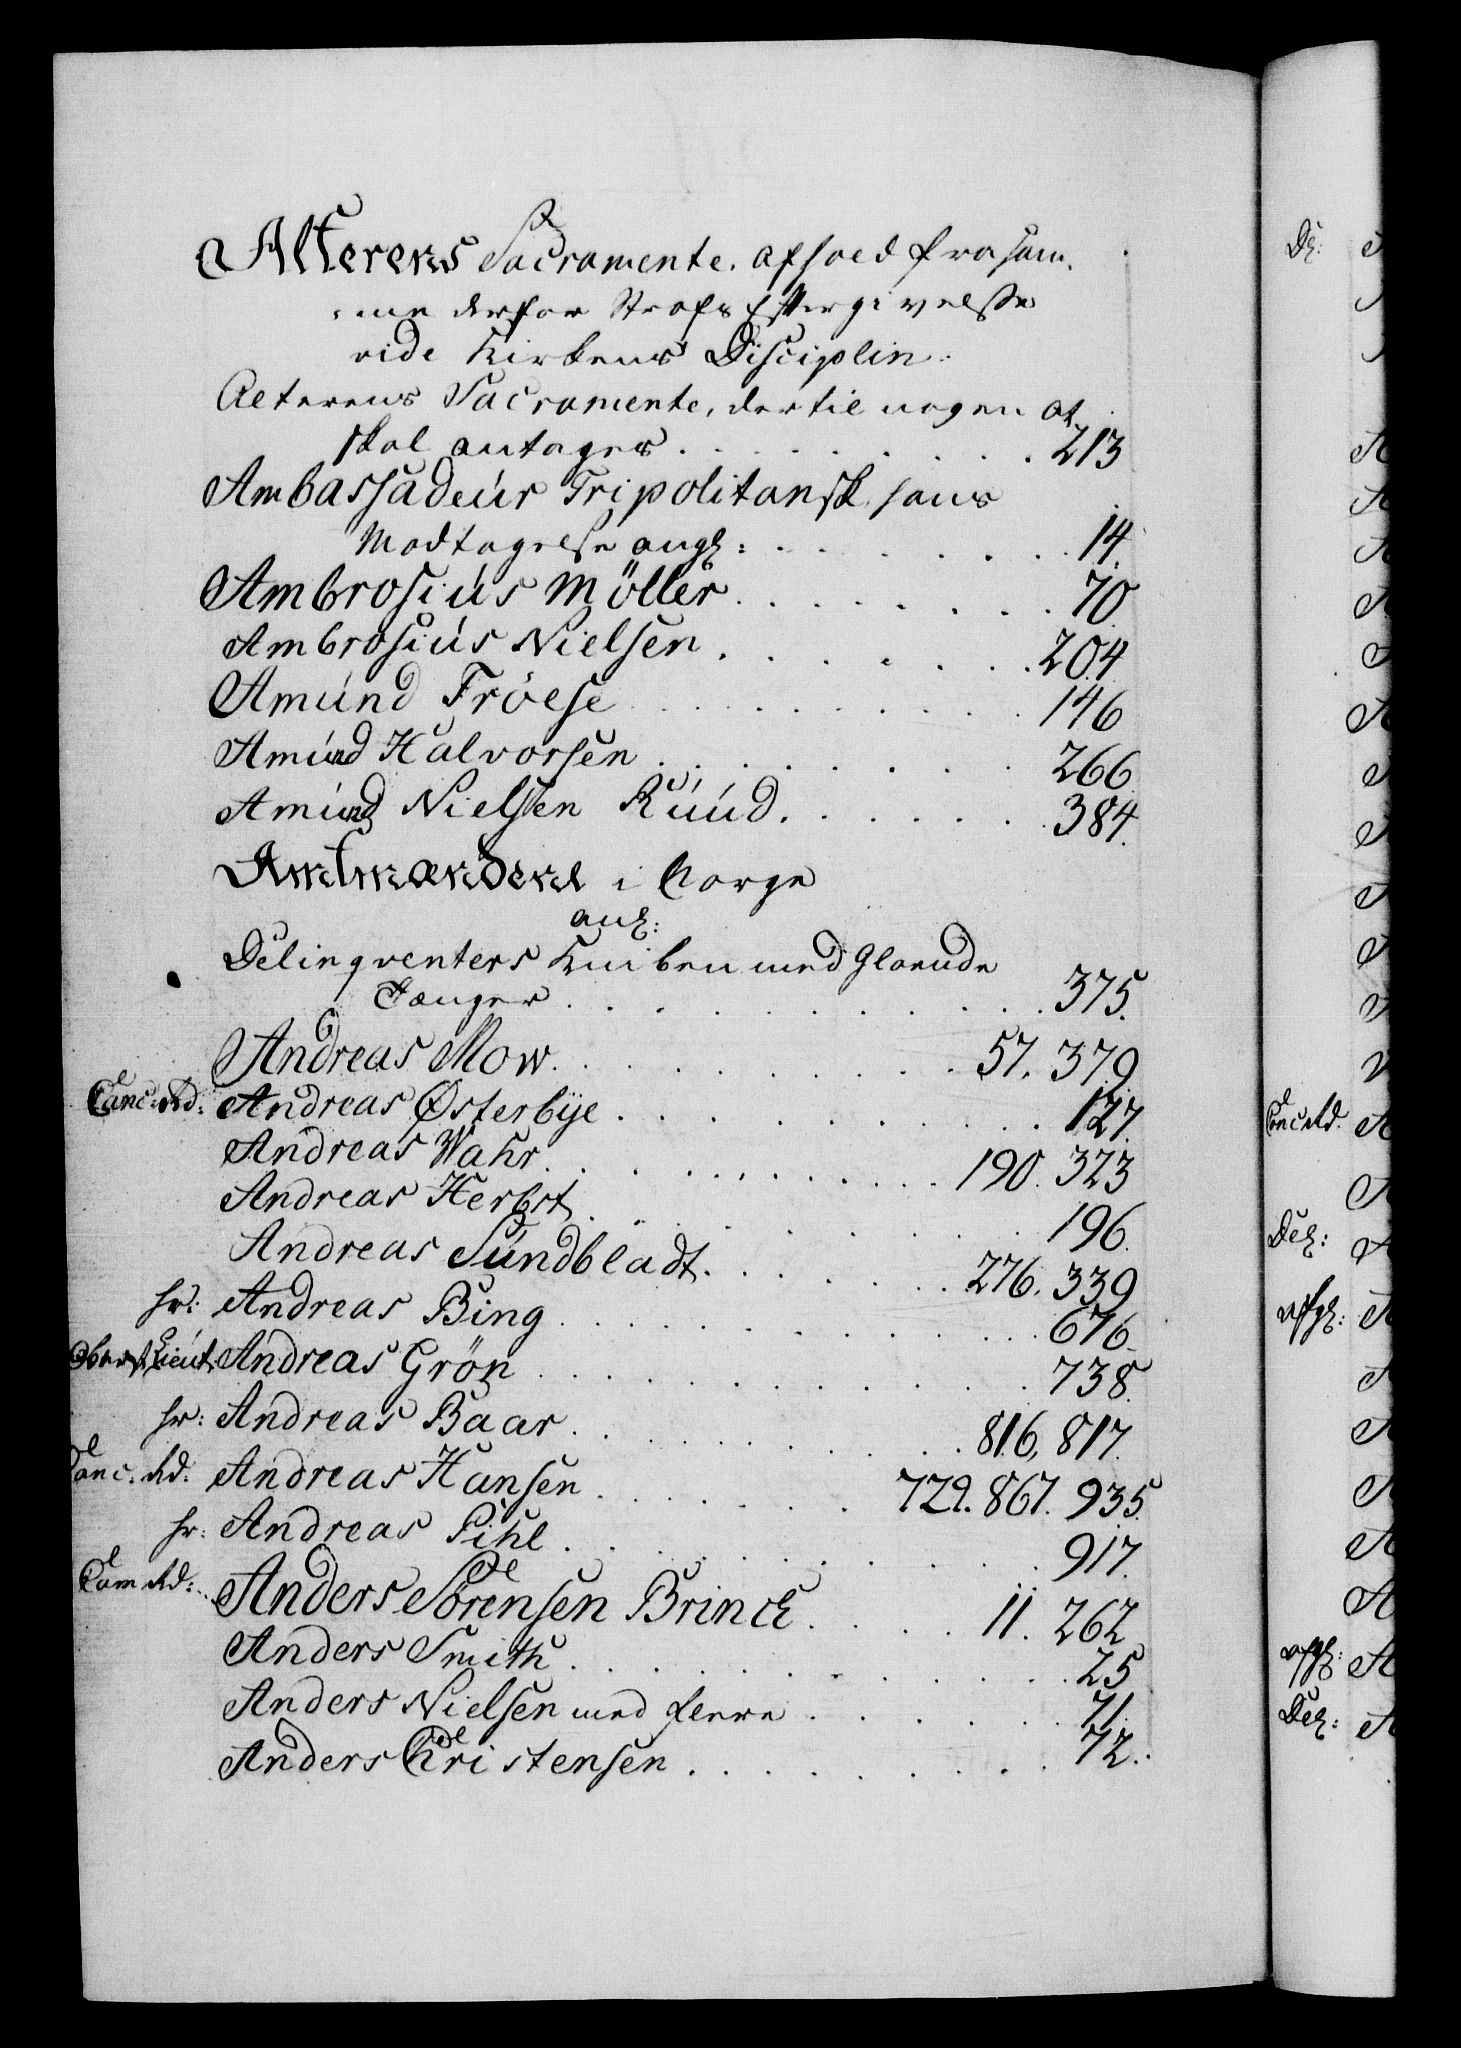 Alterens Sacramente, afhold fra sam,
me derfor Strafs Eftergivelse
vide Kirkens Disciplin.
Alterens Sacramente, dertil nogen at
skal antages . . . 213
Ambassadeur Tripolitansk hans
Modtagelse angl: . . . 14.
Ambrosius Möller . . . 70.
Ambrosius Nielsen . . . 204.
Amund Fröese . . . 146
Amund Halvorsen . . . 266.
Amund Nielsen Ruud . . . 384.
Amtmændene i Norge
anl:
Delinqventers Kniben med Gloende
Tænger . . . 375.
Andreas Mow . . . 57. 379.
Canc: Rd: Andreas Østerbye . . . 127.
Andreas Wahr . . . 190. 323
Andreas Herbst . . . 196.
Andreas Sundbladt . . . 276. 339.
hr: Andreas Bing . . . 676.
Oberst Lieut Andreas Grön . . . 738.
hr: Andreas Baar . . . 816, 817.
Canc. Rd. Andreas Hansen . . . 729. 867. 935.
hr: Andreas Pihl . . . 917.
Cam Rd: Anders Sörensen Brinck . . . 11. 262
Anders Smith . . . 25.
Anders Nielsen med flere . . . 71.
Anders Christensen . . . 72.
De:
Canc Rd.
Del:
Del: